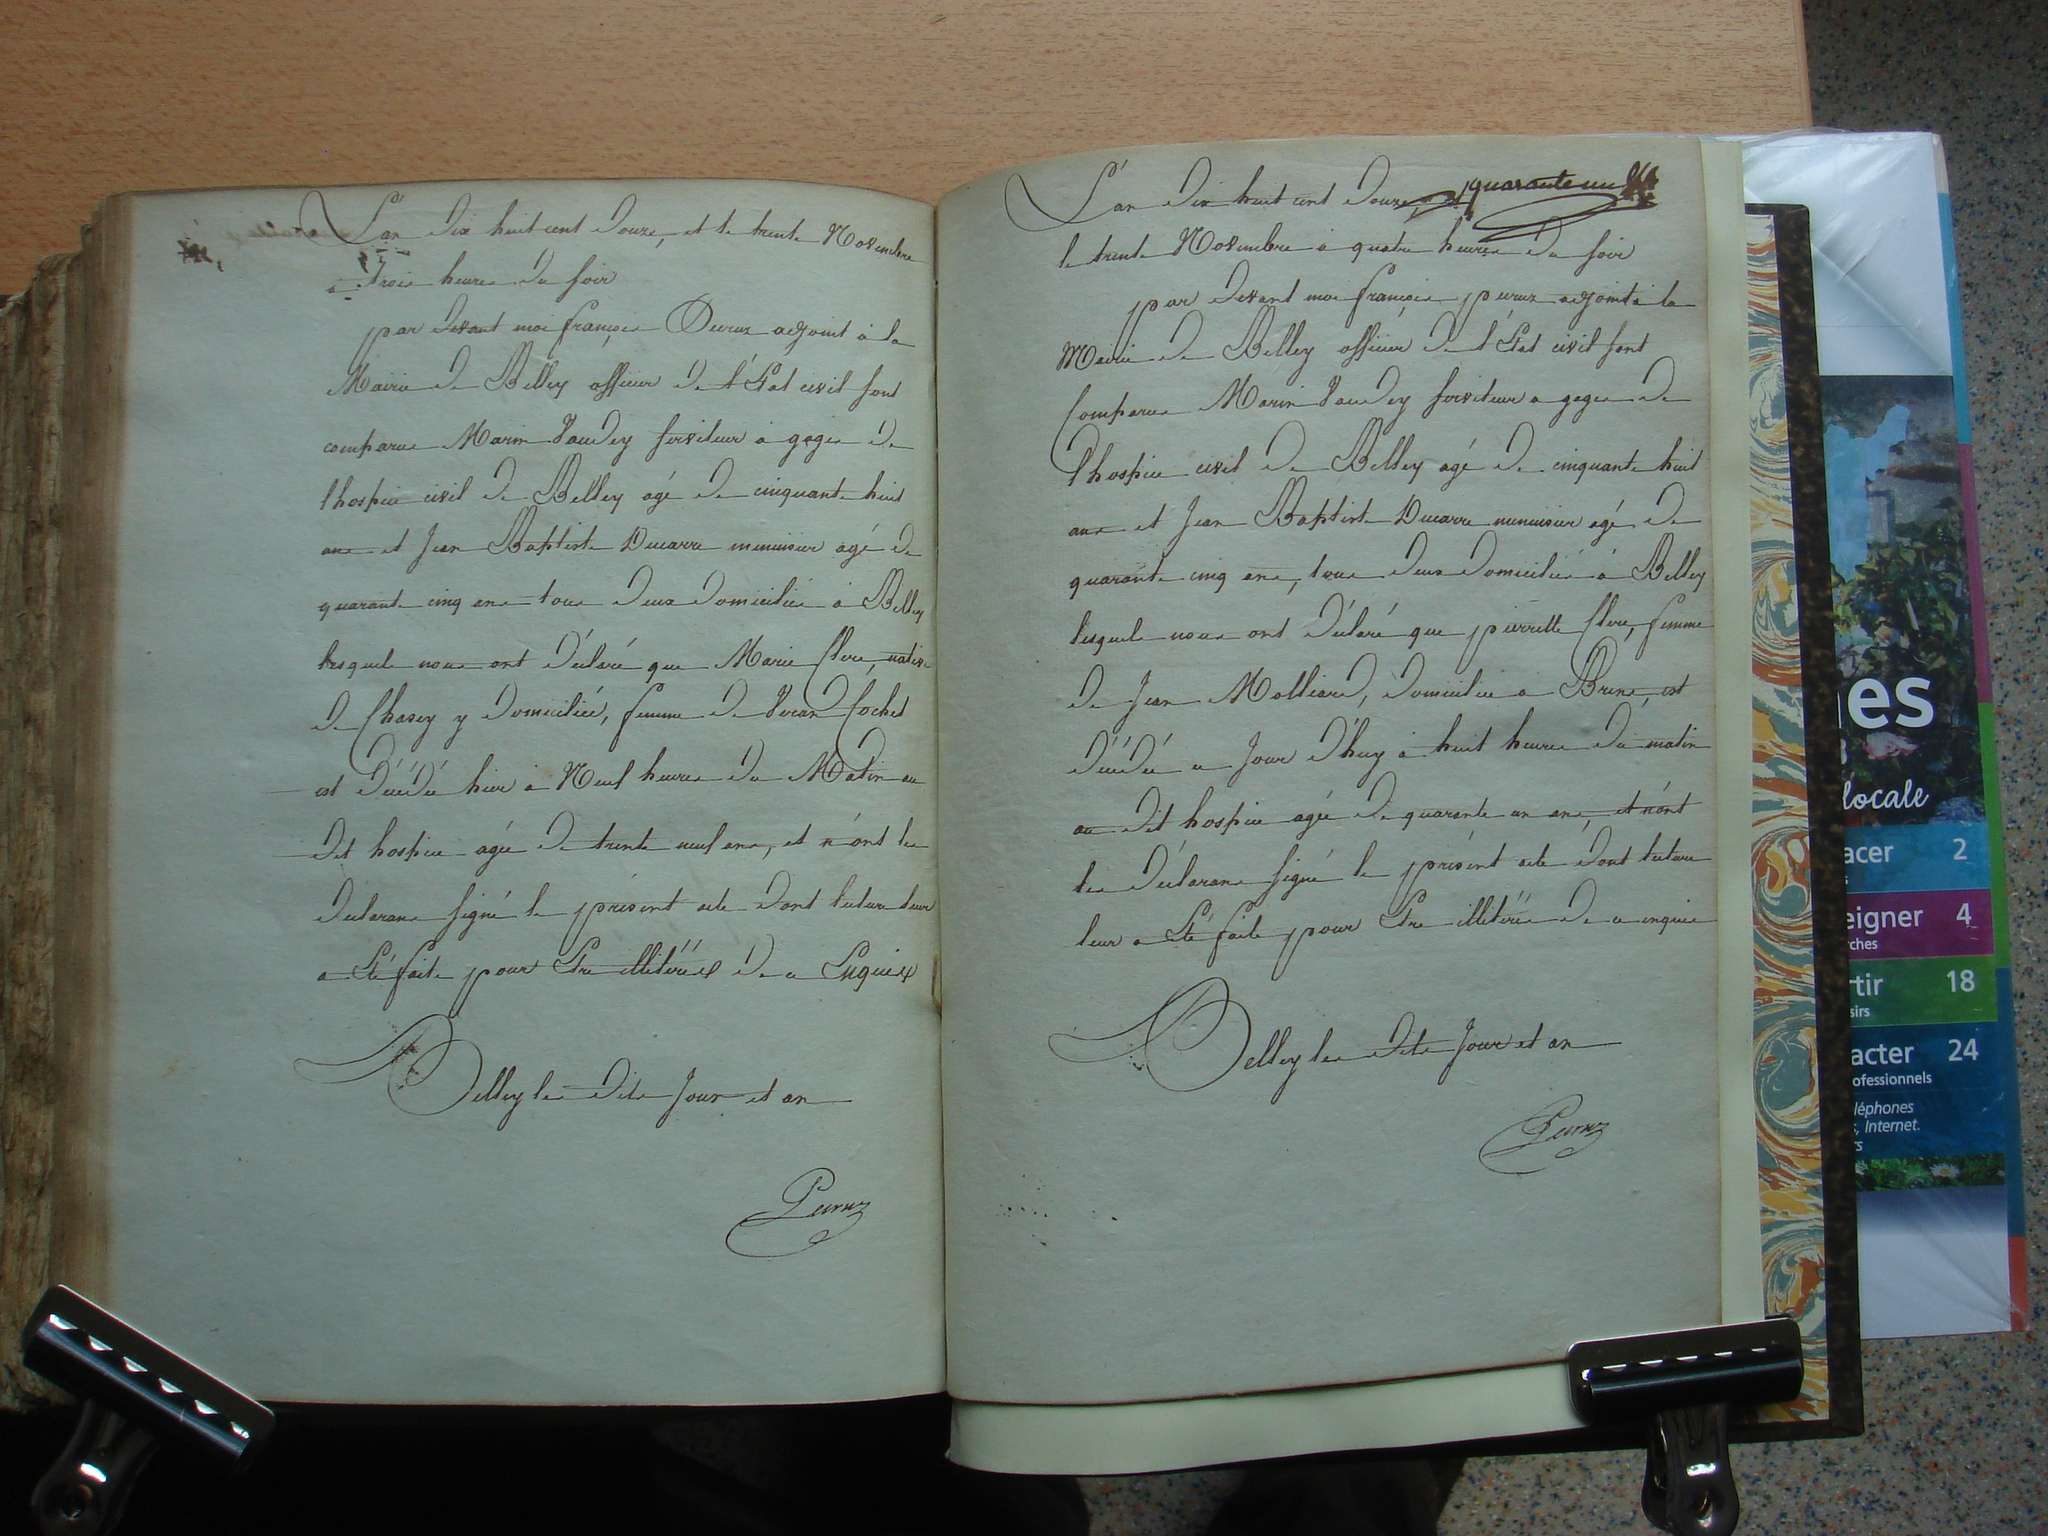 L'an dix huit cent douze, et le trente Novembre
a trois heures du soir
par devant moi françois Peruz adjoint à la
Mairie de Belley officier de l'État civil sont
comparus Marin Vaudey serviteur à gages de
l'hospice civil de Belley agé de cinquante huit
ans et Jean Baptiste Ducarre menuisier agé de
quarante cinq ans tous deux domiciliés à Belley
lesquels nous ont déclaré que Marie Clerc, native
de Chasey y domiciliée, femme de Cochet
est décédé hier à Neuf heures du Matin au
dit hospice agée de trente neuf ans, et n'ont les
declarans signé le présent acte dont lecture leur
a Eté faite pour Etre illitérés de ce Enquis
Belley les dits Jour et an
Peruz
L'an dix huit cent douze, et quarante un
le trente Novembre à quatre heures du soir
par devant moi françois peruz adjoint à la
Mairie de Belley officier de l'État civil sont
Comparus Marin Vaudey serviteur a gages de
l'hospice civil de Belley agé de cinquante huit
ans et Jean Baptiste Ducarre menuisier agé de
quarante cinq ans, tous deux domiciliés à Belley
lesquels nous ont déclaré que pierrette Clerc, femme
de Jean Molliard, domiciliée à Brens, est
décédée ce Jour d'huy à huit heures du matin
au dit hospice agée de quarante un ans, et n'ont
les déclarans signé le présent acte dont lecture
leur a Eté faite pour Etre illitérés de ce enquis
Belley les dits Jour et an
Peruz
es
locale
acer 2
eigner 4
rches
rtir 18
sirs
acter 24
ofessionnels
léphones
s, Internet.
rs